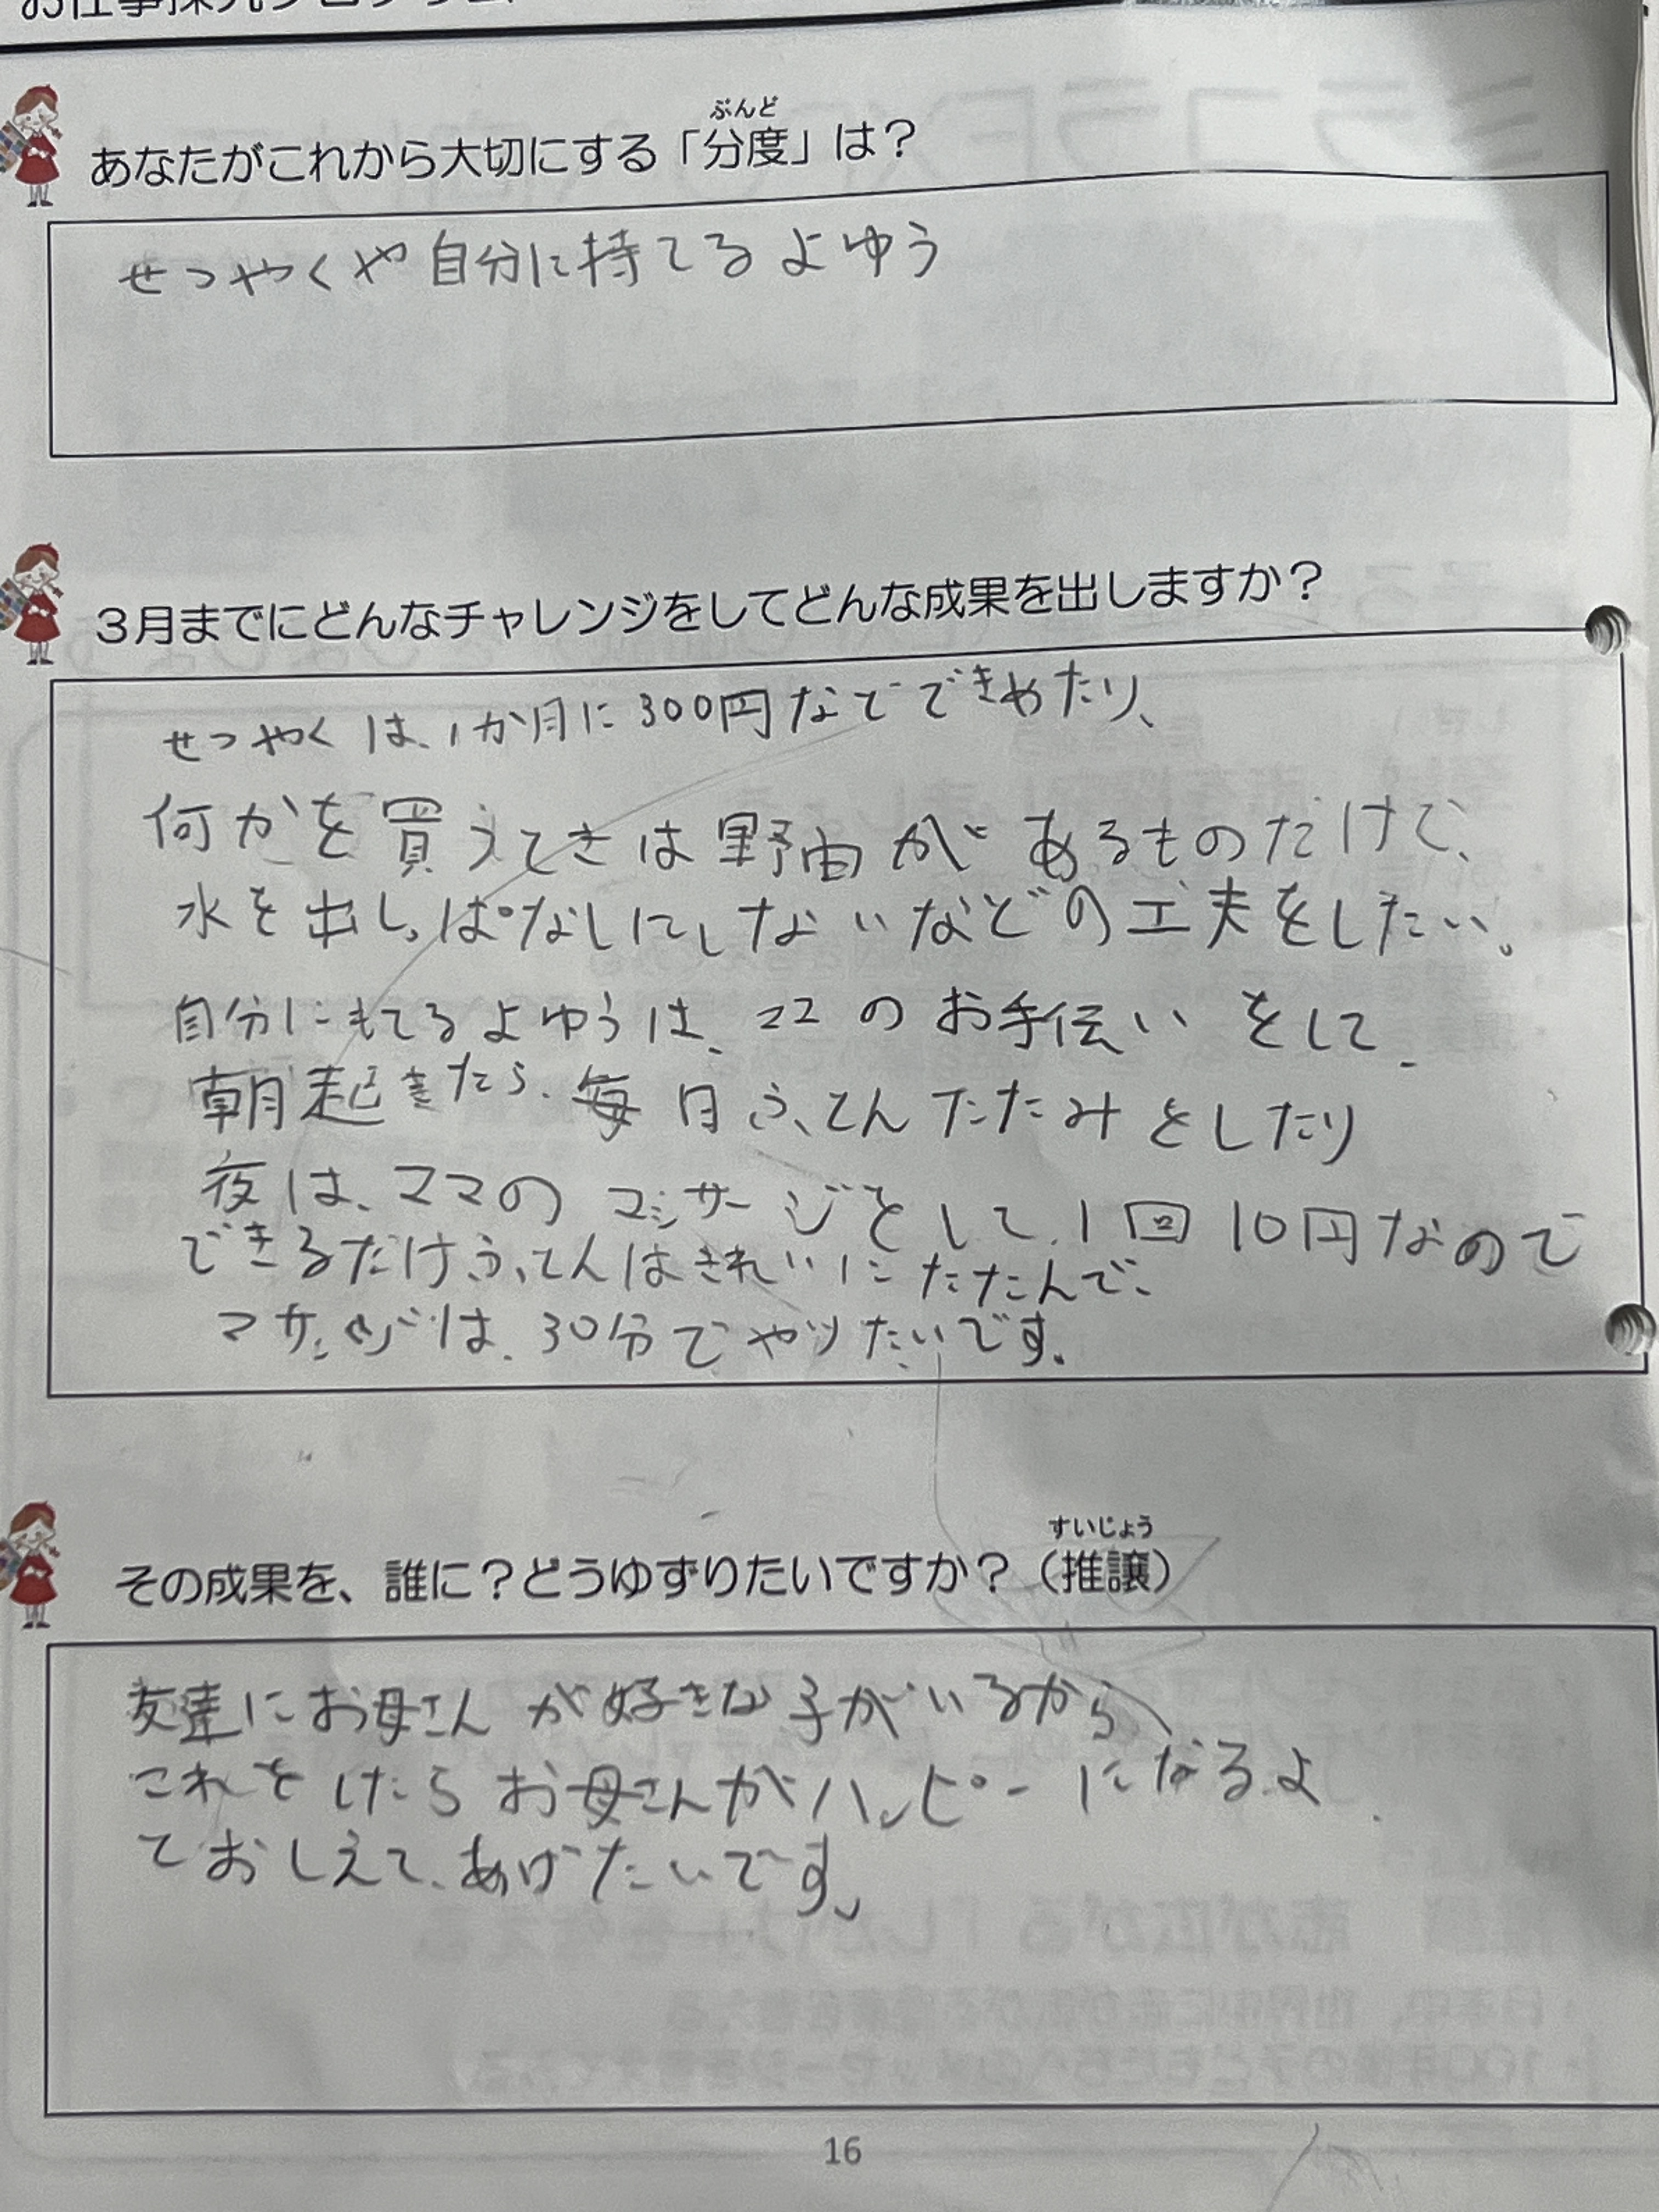 あなたがこれから大切にする「分度」は？
ぶんど
せつやくや自分に持てるよゆう
３月までにどんなチャレンジをしてどんな成果を出しますか？
せつやくは、1か月に300円なでできめたり、
何かを買うときは野由があるものだけで、
水を出しっぱなしにしないなどの工夫をしたい。
自分にもてるよゆうは、ママのお手伝いをして、
朝起きたら、毎日ふとんたたみをしたり
夜は、ママのマッサージをして、1回10円なので
できるだけふとんはきれいにたたんで、
は、30分でやりたいです。
その成果を、誰に？どうゆずりたいですか？（推譲）
すいじょう
友達にお母さんが好きな子がいるから
これをしたらお母さんがハッピーになるよ
ておしえてあげたいです。
16